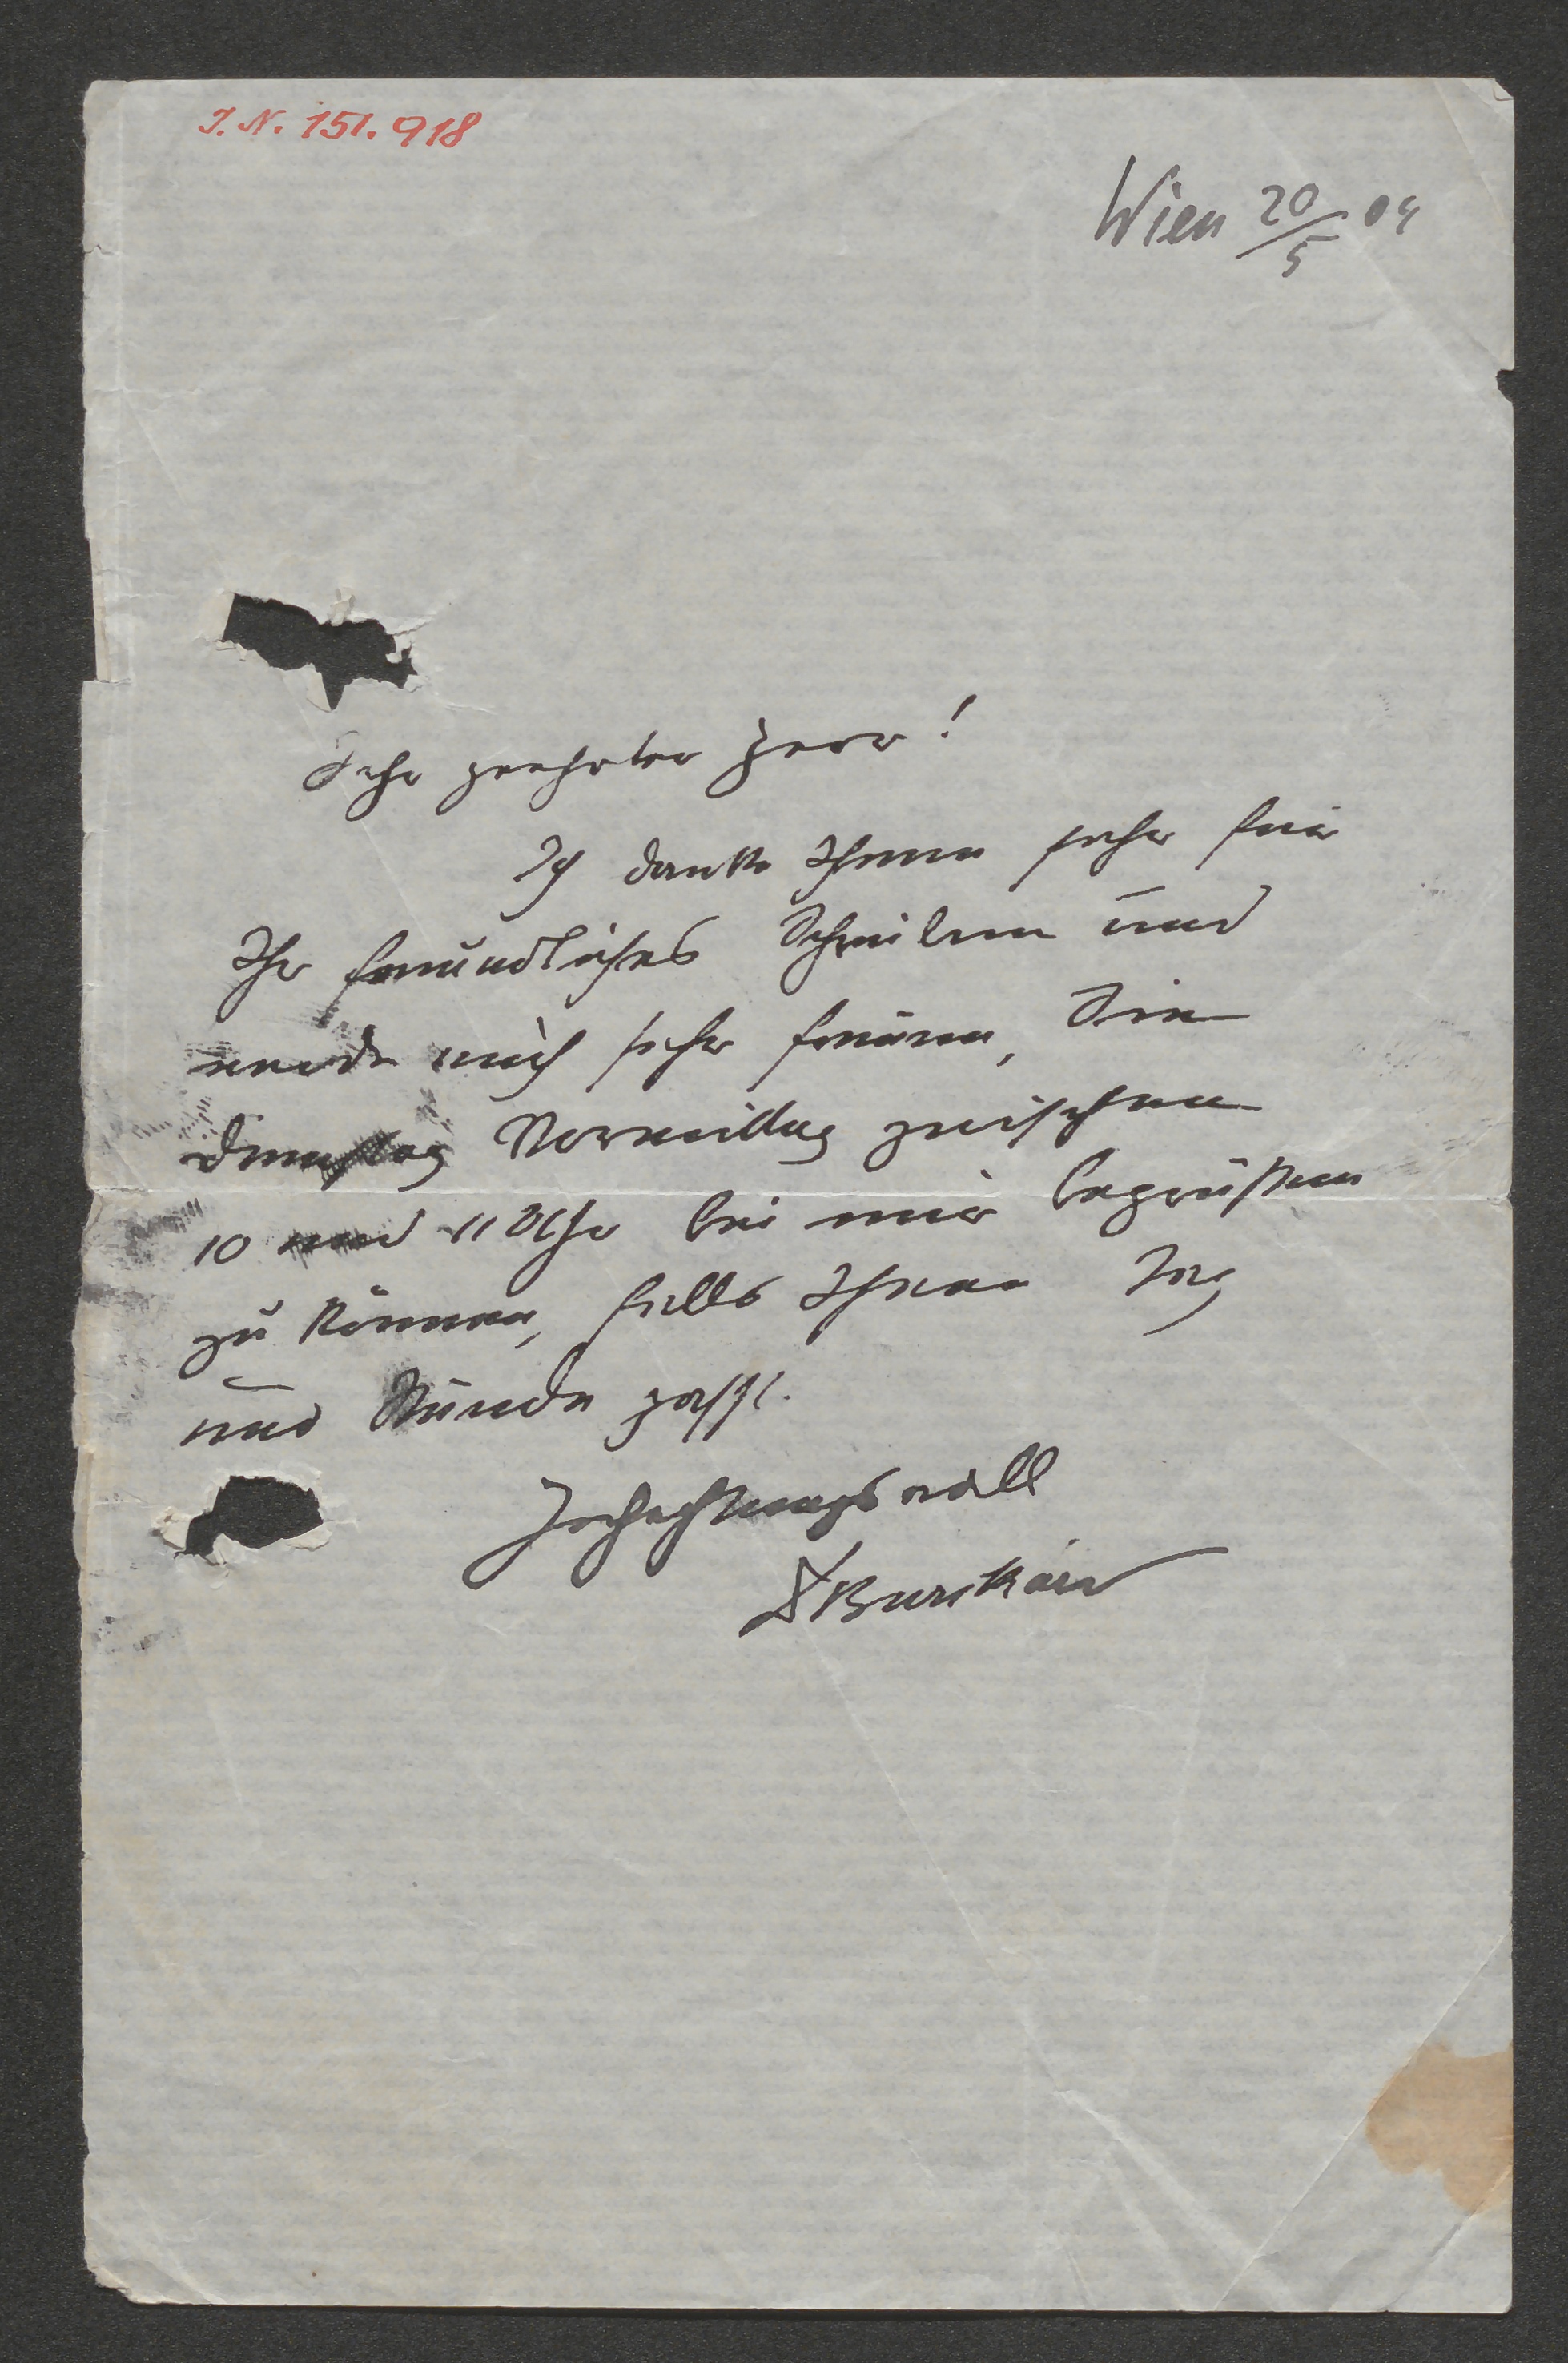 I.N. 151.918
Wien 20/5 04
Sehr geehrter Herr!
Ich danke Ihnen sehr für
Ihr freundliches Schreiben und
werde mich sehr freuen, Sie
Dienstag Vormittag zwischen
10 und 11 Uhr bei mir begrüßen
zu können, falls Ihnen Tag
und Stunde passt.
Hochachtungsvoll
Burckhard